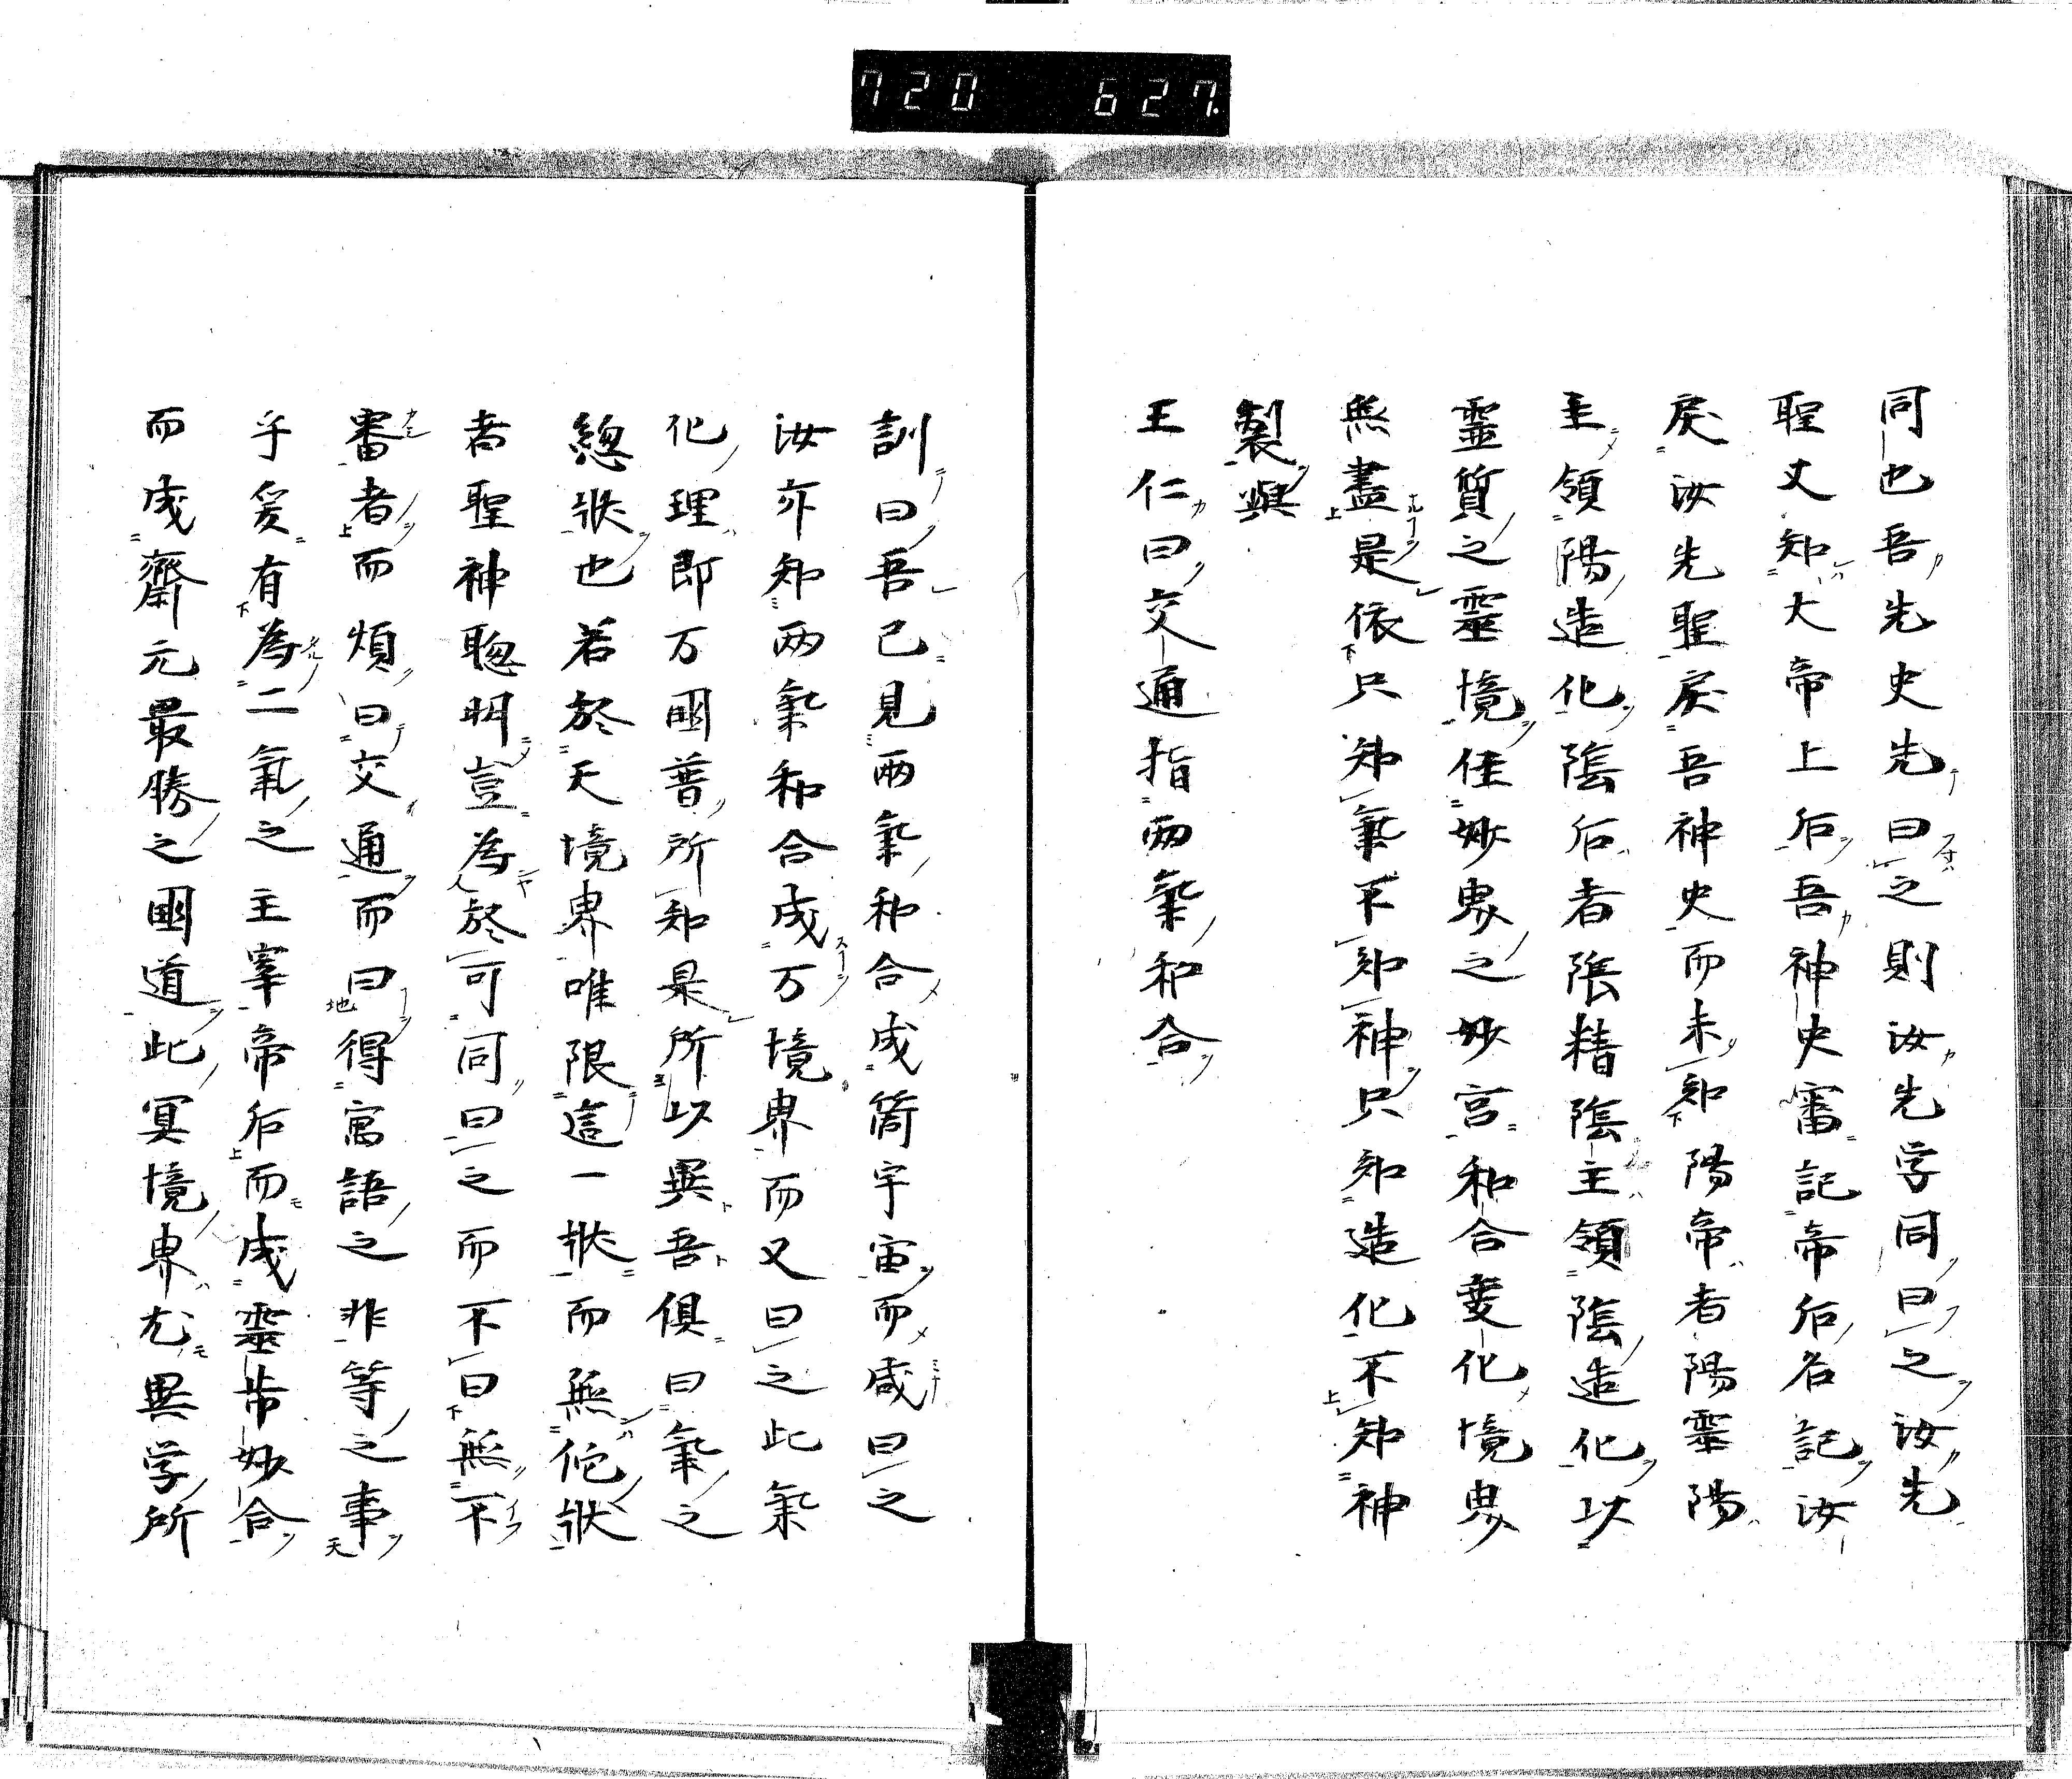 720 627
同也吾先史先曰之則汝先学同曰之汝先
聖丈知大帝上后吾神史審記帝后名記汝
戾汝先聖戾吾神史而未知陽帝者陽霊陽
主領陽造化陰后者陰精陰主領陰造化以
霊質之霊境佳妙界之妙宮和合変化境界
無盡是依只知氣不知神只知造化不知神
製與
王仁曰交通指両氣和合
訓曰吾已見両氣和合成箇宇宙而咸曰之
汝亦知両氣和合成万境界而又曰之此氣
化理即万國普所知是所以異吾俱曰氣之
緫狀也若於天境界唯限這一狀而無佗狀
者聖神聡明豈為於可同曰之而不曰無不
審者而煩曰交通而曰得寓語之非等之事
乎爰有為二氣之主宰帝后而成霊帯妙合
而成齋元最勝之國道此冥境界尤異学所